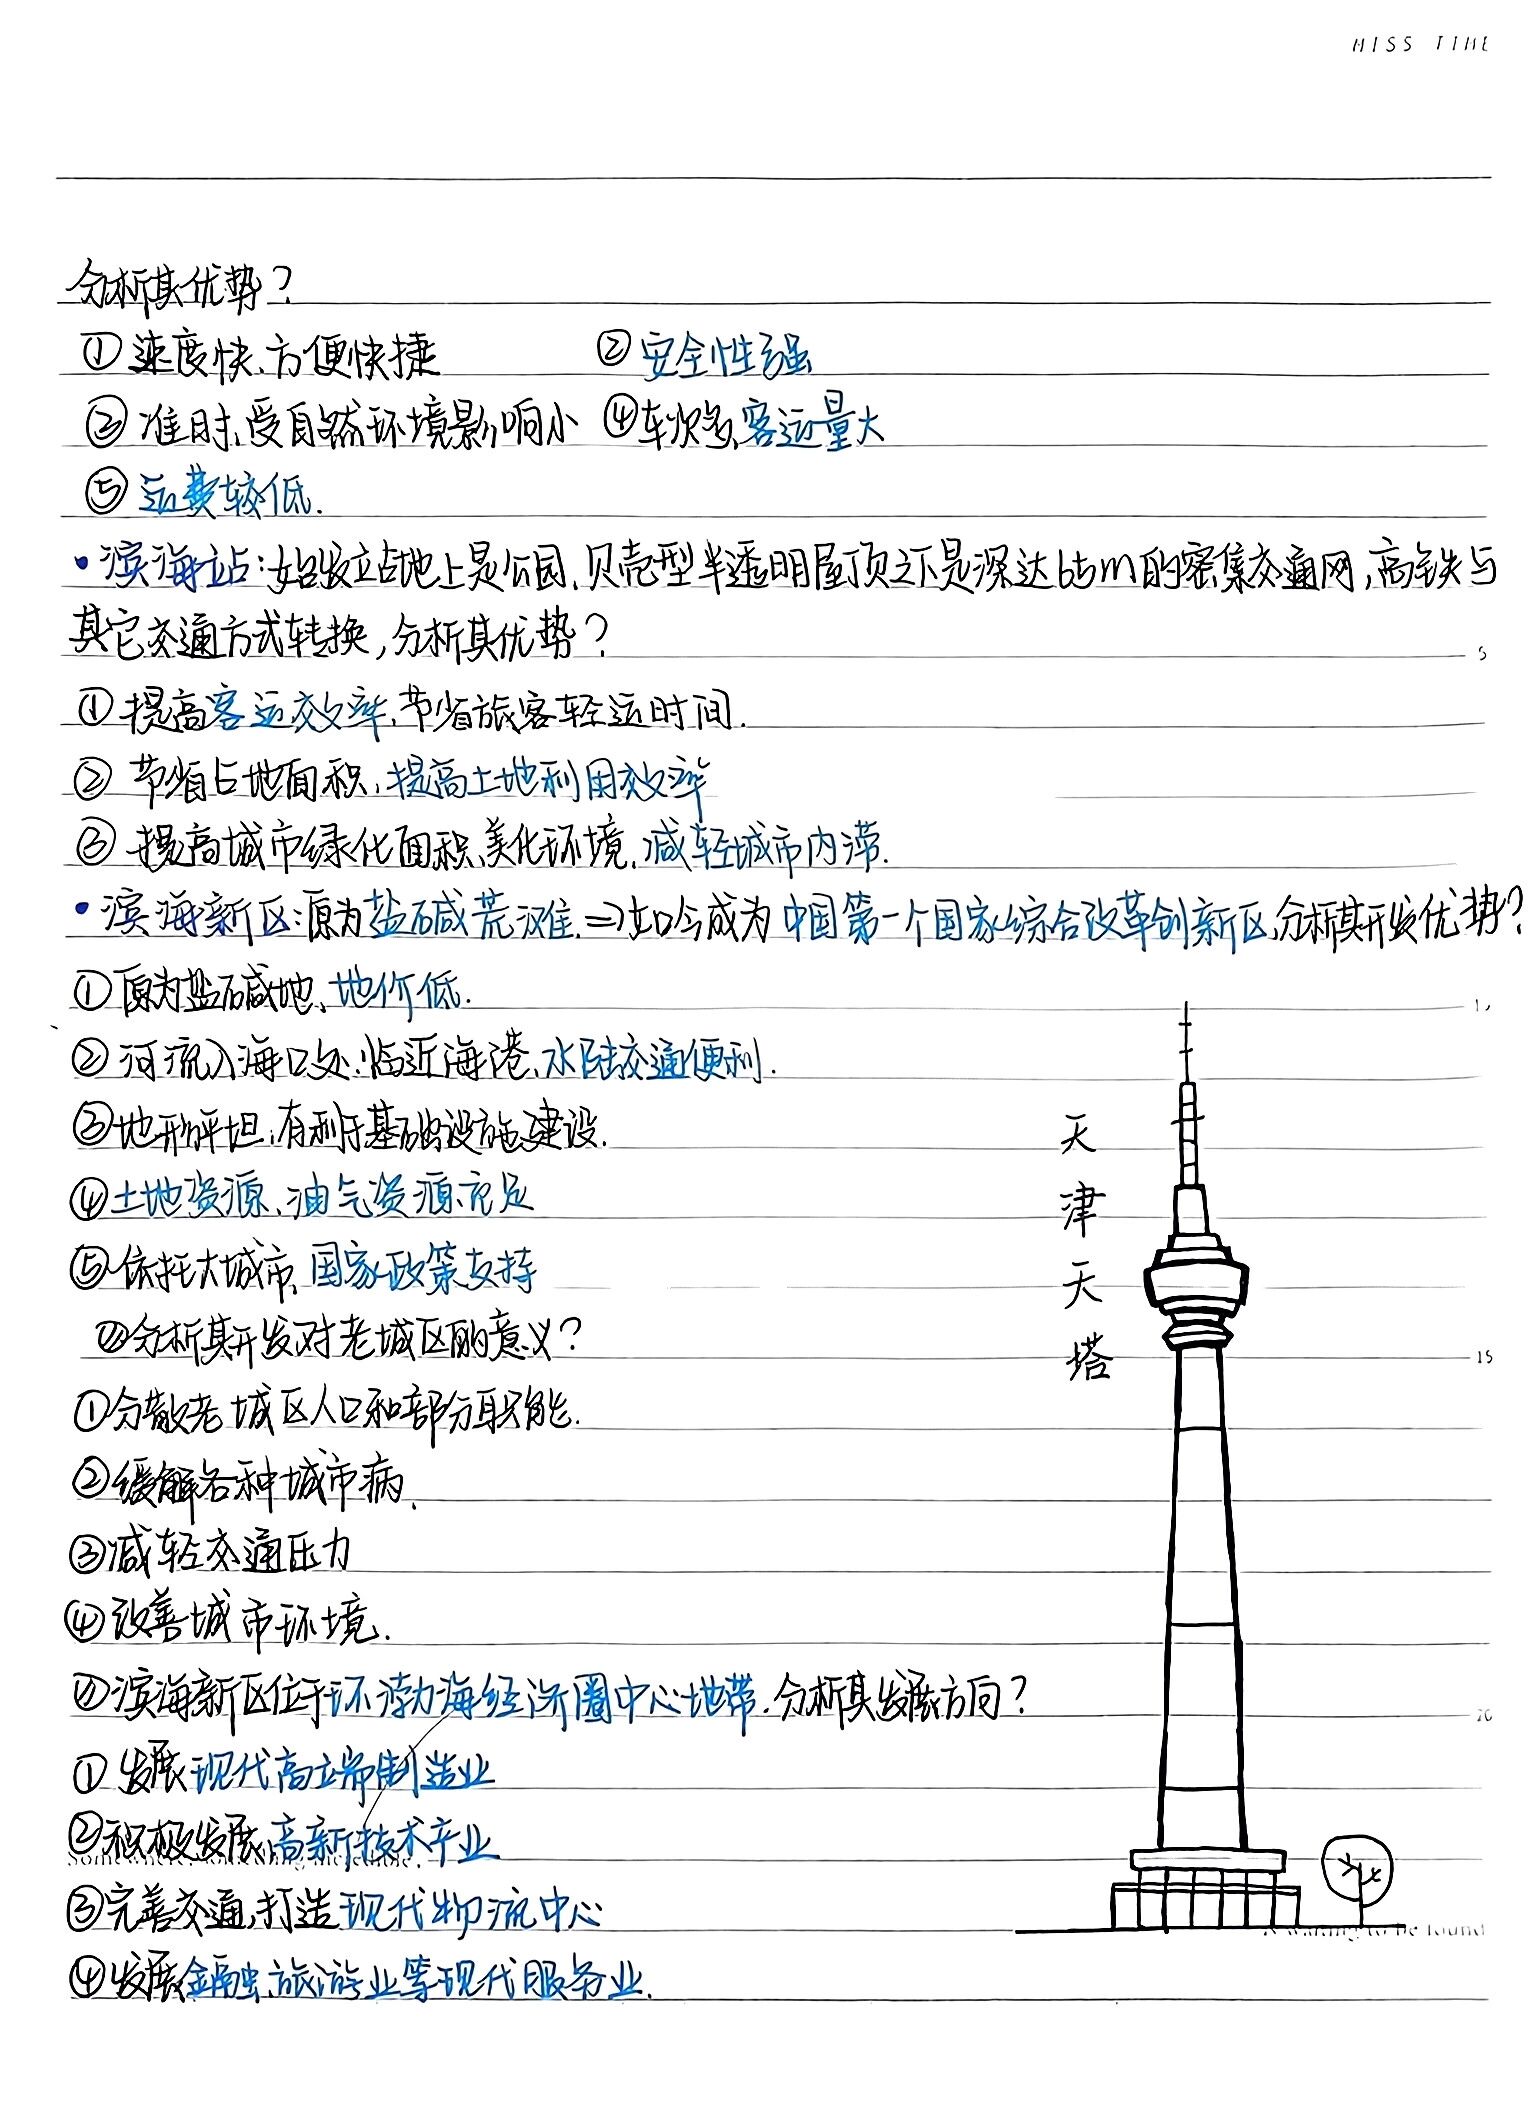 MISS TIME
分析其优势?
①速度快、方便快捷 ②安全性强
③准时、受自然环境影响小 ④车次多、客运量大
⑤运费较低.
·滨海站:始发站地上是公园、贝壳型半透明屋顶之下是深达65m的密集交通网,高铁与
其它交通方式转换,分析其优势? 5
①提高客运效率、节省旅客转运时间.
②节省占地面积,提高土地利用效率
③提高城市绿化面积、美化环境、减轻城市内涝.
·滨海新区:原为盐碱荒滩.⇒如今成为中国第一个国家综合改革创新区、分析其开发优势?
①原为盐碱地、地价低.
②河流入海口处:临近海港、水陆交通便利.
③地形平坦:有利于基础设施建设.
④土地资源、油气资源充足
⑤依托大城市、国家政策支持
②分析其开发对老城区的意义? 15
①分散老城区人口和部分职能.
②缓解各种城市病.
③减轻交通压力
④改善城市环境.
②滨海新区位于环渤海经济圈中心地带.分析其发展方向? 20
①发展现代高端制造业
②积极发展高新技术产业
Somewhere, something incredible
③完善交通,打造现代物流中心
is waiting to be found
④发展金融、旅游业等现代服务业.
天
津
天
塔